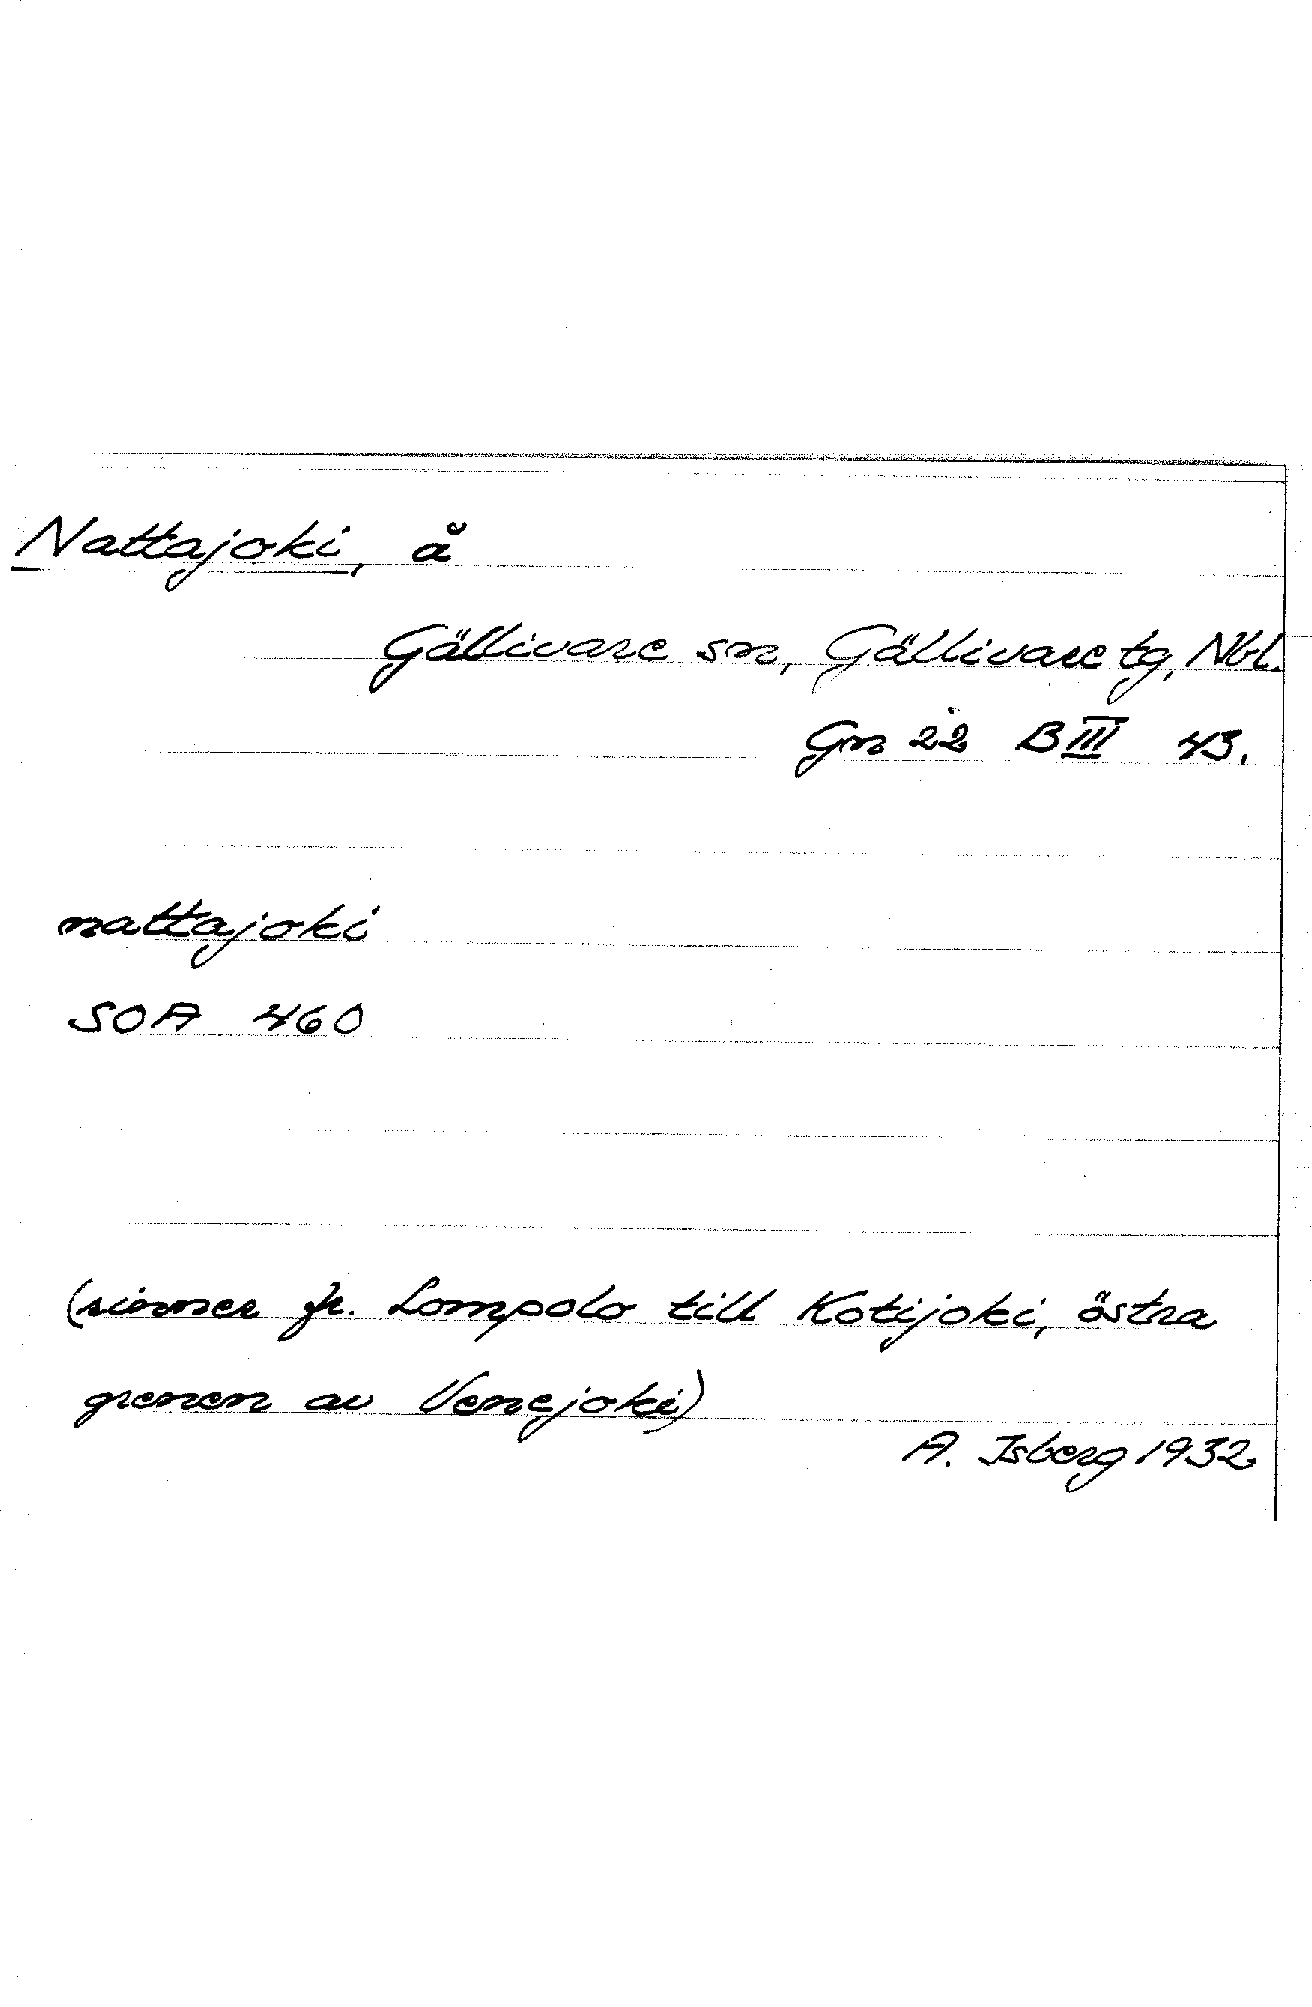 Nattajoki, å
Gällivare sn, Gällivare tg, Nbl.
Gn 22 B III 43.
nattajoki
SOA 460
(rinner fr. Lompolo till Kotijoki, östra
grenen av Venejoki)
A. Isberg 1932